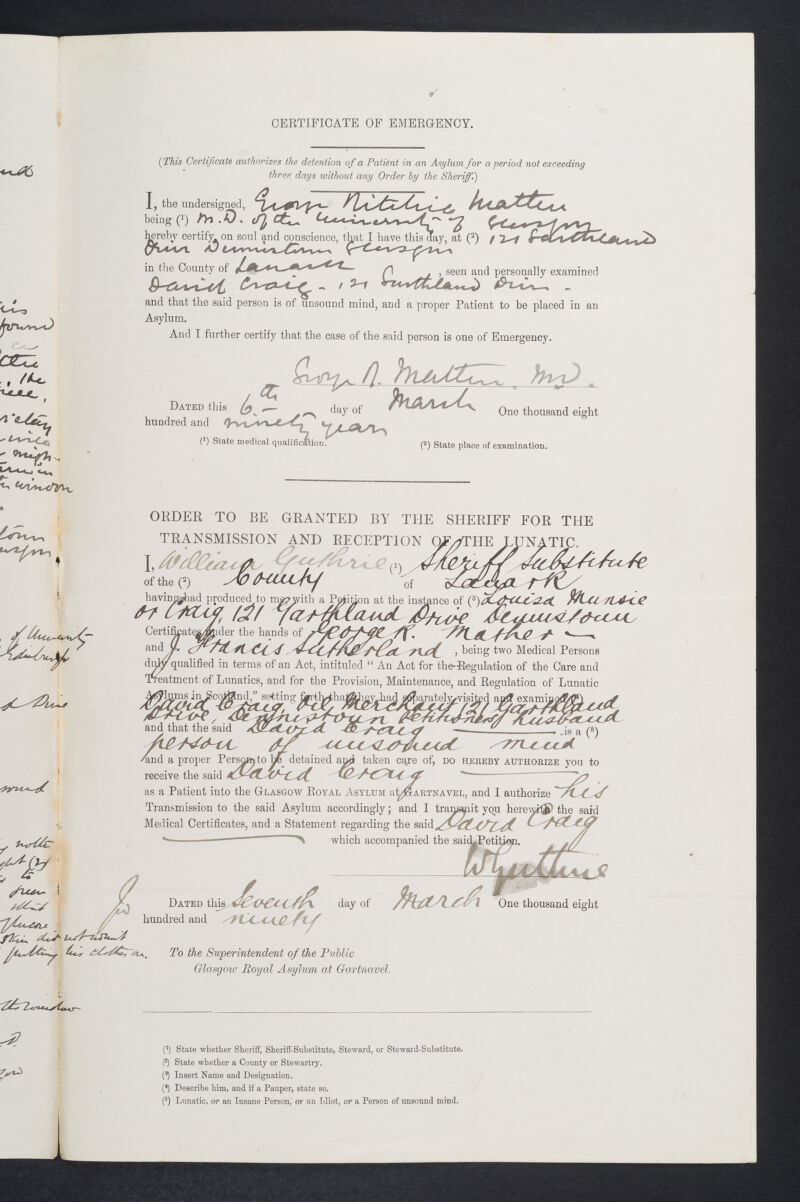 CERTIFICATE OF EMERGENCY.
(This Certificate authorizes the detention of a Patient in an Asylum for a period not exceeding
three days without any Order by the Sheriff.)
I, the undersigned, George Ritchie Mather
being (¹) M.D. of the University of Glasgow
hereby certify, on soul and conscience, that I have this day, at (²) 121 Garthland
Drive Dennistoun Glasgow
in the County of Lanark, seen and personally examined
David Craig - 121 Garthland Drive -
and that the said person is of unsound mind, and a proper Patient to be placed in an
Asylum.
And I further certify that the case of the said person is one of Emergency.
George R. Mather. M.D.
DATED this 6th day of March One thousand eight
hundred and ninety years
(¹) State medical qualification. (²) State place of examination.
ORDER TO BE GRANTED BY THE SHERIFF FOR THE
TRANSMISSION AND RECEPTION OF THE LUNATIC.
I, William Guthrie (¹) Sheriff Substitute
of the (²) County of Lanark
having had produced to me with a Petition at the instance of (³) Louisa Munsie
or Craig, 121 Garthland Drive Dennistoun
Certificates under the hands of George R. Mather —
and J. Francis Sutherland, being two Medical Persons
duly qualified in terms of an Act, intituled “An Act for the Regulation of the Care and
Treatment of Lunatics, and for the Provision, Maintenance, and Regulation of Lunatic
Asylums in Scotland,” setting forth that they had separately visited and examined (⁴)
David Craig, Oil Merchant 121 Garthland
Drive, Dennistoun Petitioners husband
and that the said David Craig — is a (⁵)
person of unsound mind
and a proper Person to be detained and taken care of, DO HEREBY AUTHORIZE you to
receive the said David Craig —
as a Patient into the GLASGOW ROYAL ASYLUM at GARTNAVEL, and I authorize his
Transmission to the said Asylum accordingly; and I transmit you herewith the said
Medical Certificates, and a Statement regarding the said David Craig
— which accompanied the said Petition.
W Guthrie
DATED this Seventh day of March One thousand eight
hundred and ninety
To the Superintendent of the Public
Glasgow Royal Asylum at Gartnavel.
(¹) State whether Sheriff, Sheriff-Substitute, Steward, or Steward-Substitute.
(²) State whether a County or Stewartry.
(³) Insert Name and Designation.
(⁴) Describe him, and if a Pauper, state so.
(⁵) Lunatic, or an Insane Person, or an Idiot, or a Person of unsound mind.
found
the
window
of University
Edinburgh
Drive
skin did not admit
putting his clothes on.
the window